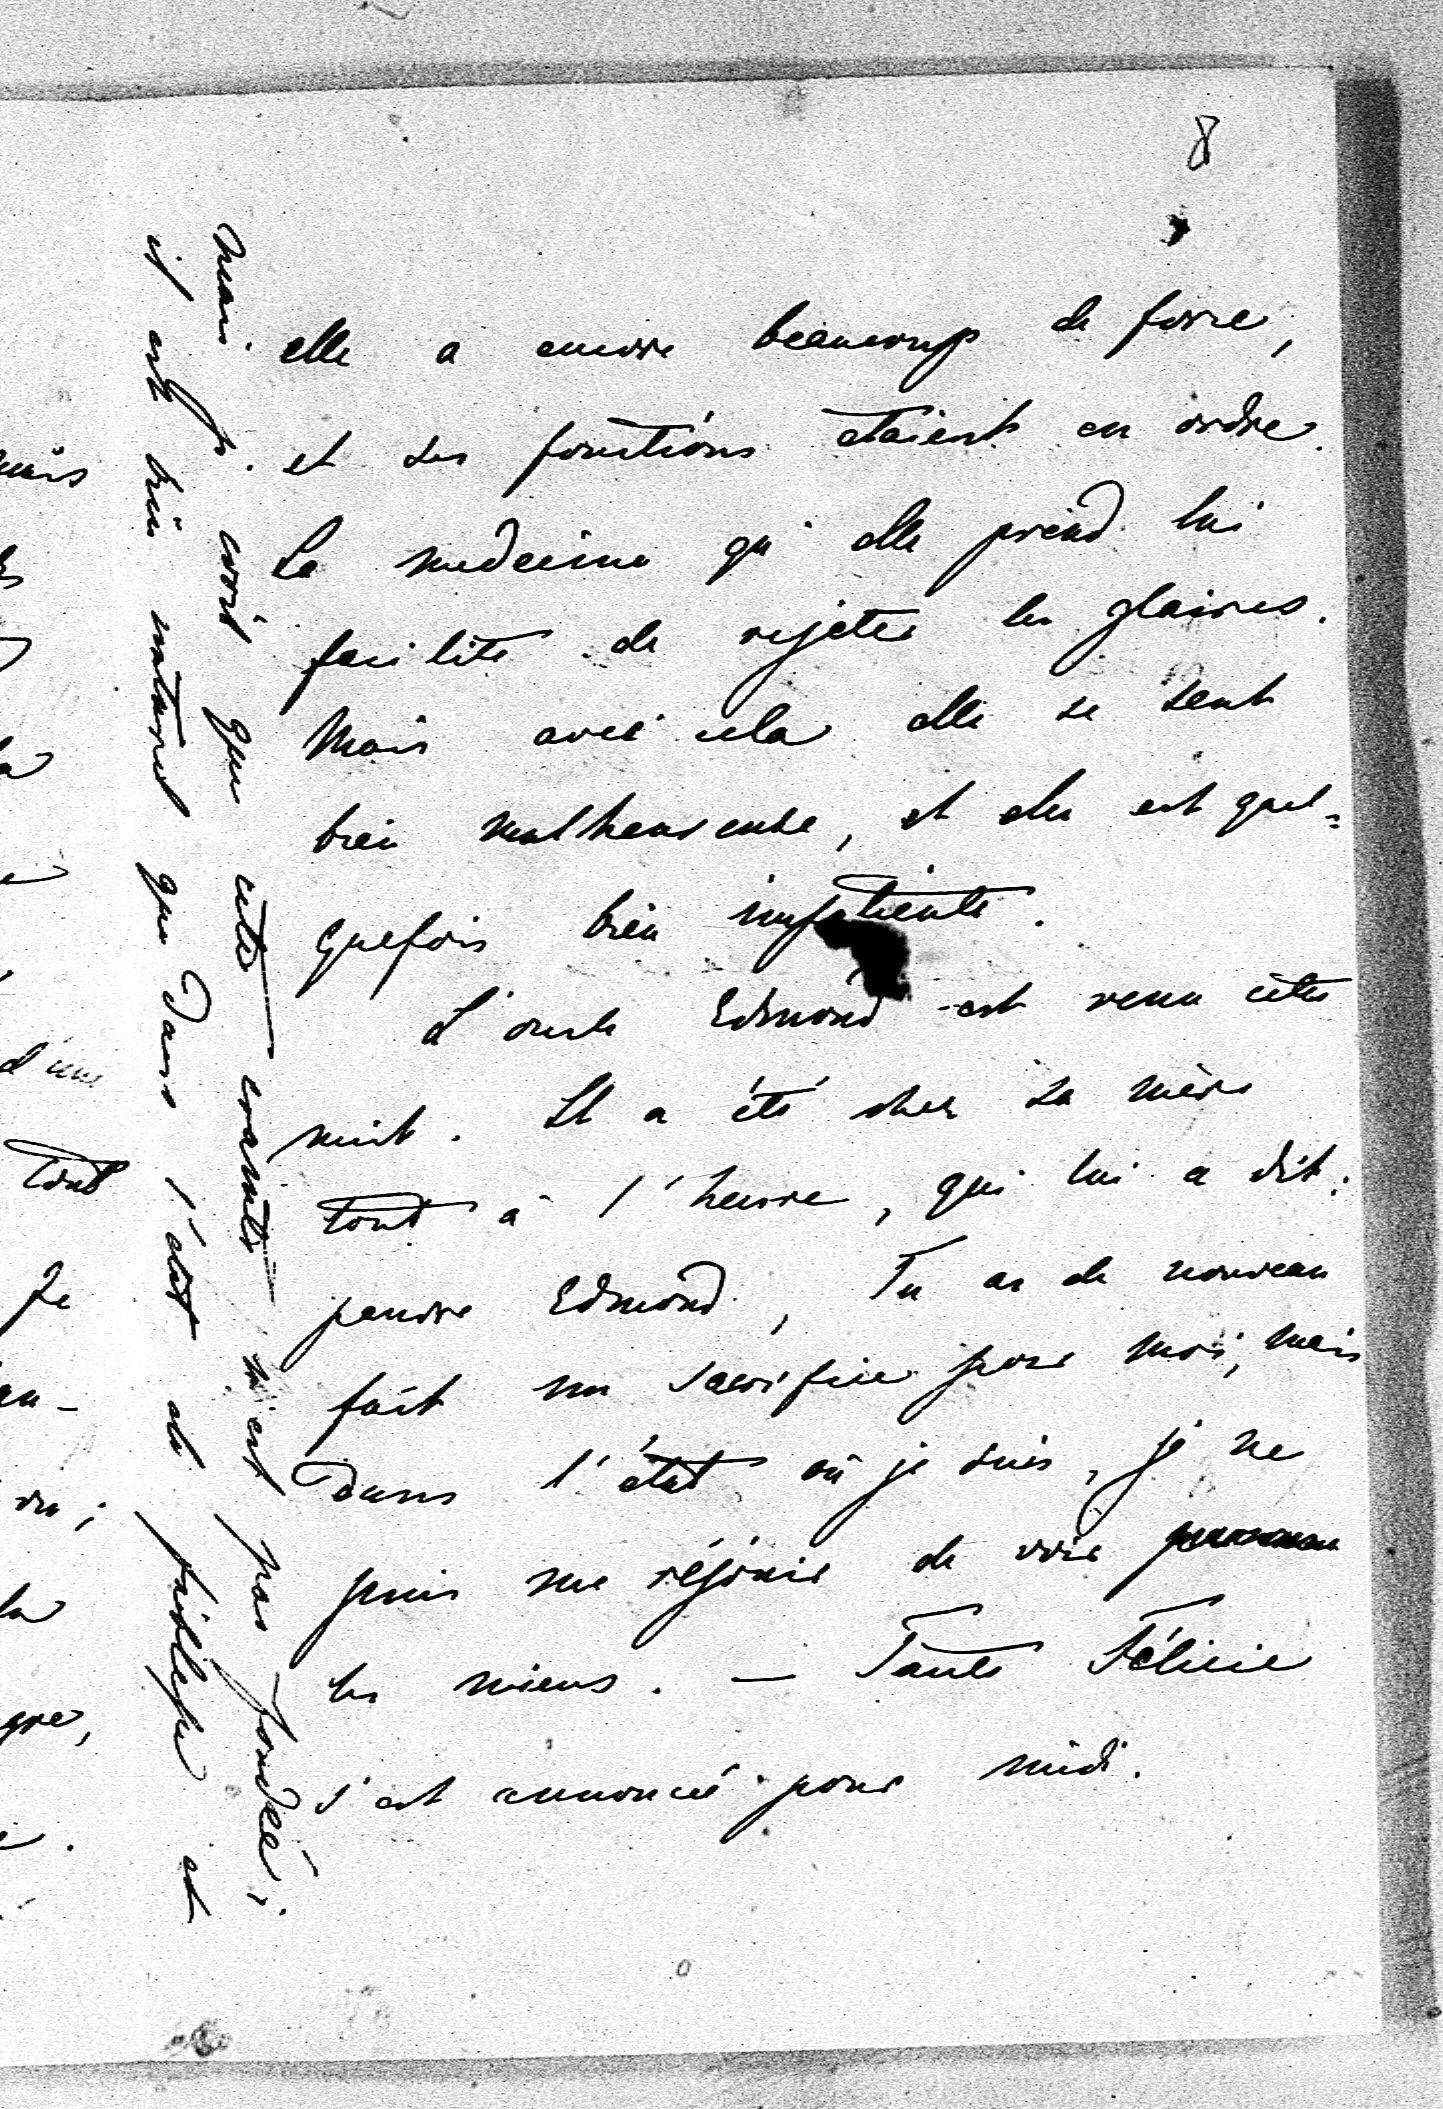 8
elle a encore beaucoup de force,
et ses fonctions étaient en ordre.
La medecine qu'elle prend lui
facilite de rejeter les glaires.
Mais avec cela elle se sent
bien malheureuse, et elle est quel=
quefois bien impatiente.
L'oncle Edmond est venu cette
nuit. Il a été chez sa mère
tout à l'heure, qui lui a dit:
pauvre Edmond, Tu as de nouveau
fait un sacrifice pour moi, mais
dans l'état où je suis, je ne
puis me réjouir de voir
les miens. — Tante Félicie
s'est annoncée pour midi.
mais je crois que cette crainte n'est pas fondée;
il est bien naturel que dans l'état de faiblesse et
mais
la
d'une
tout
Je